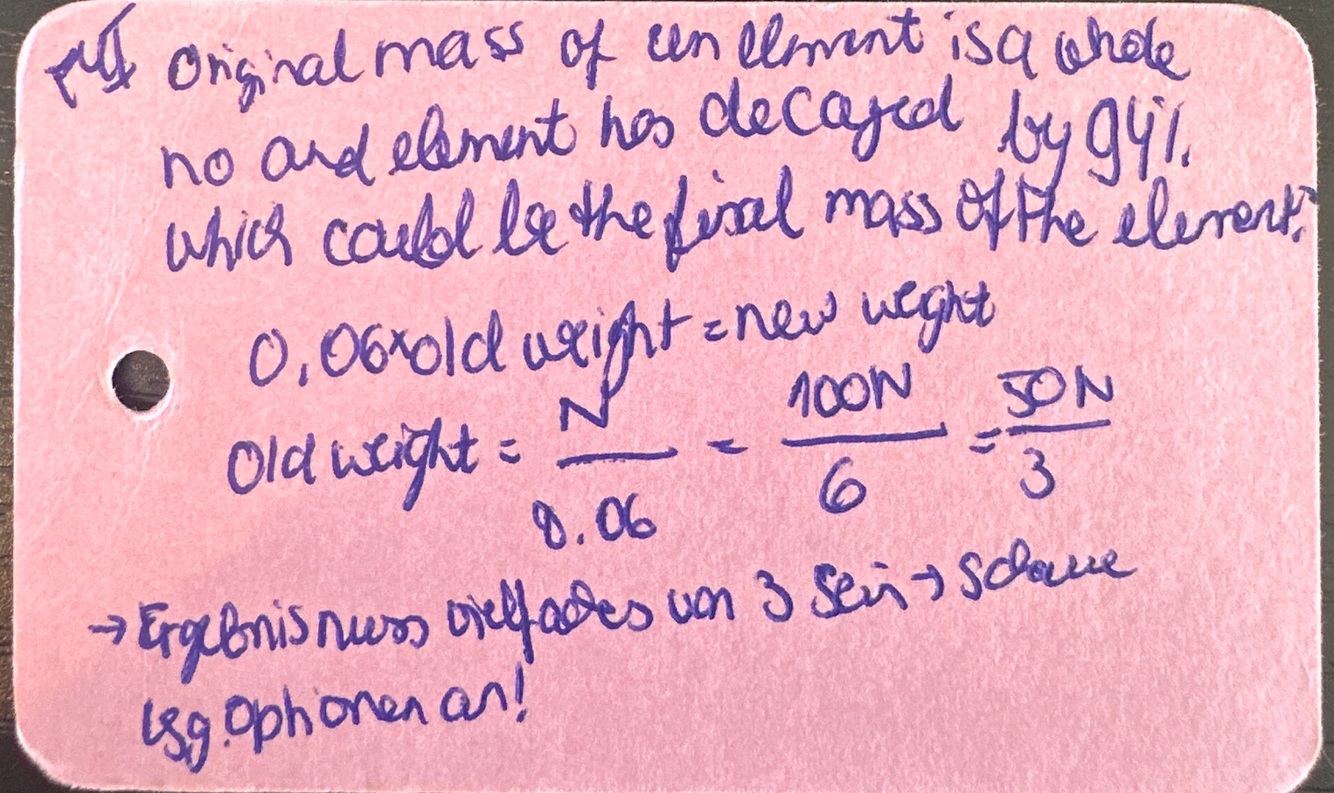 Original mass of an element is a whole
no and element has decayed by 94%.
which could be the final mass of the element?
0,06×old weight = new weght
Old weight = N / 0.06 = 100N / 6 = 50N / 3
→ Ergebnis muss vielfaches von 3 sein → schaue
Lsg. Optionen an!